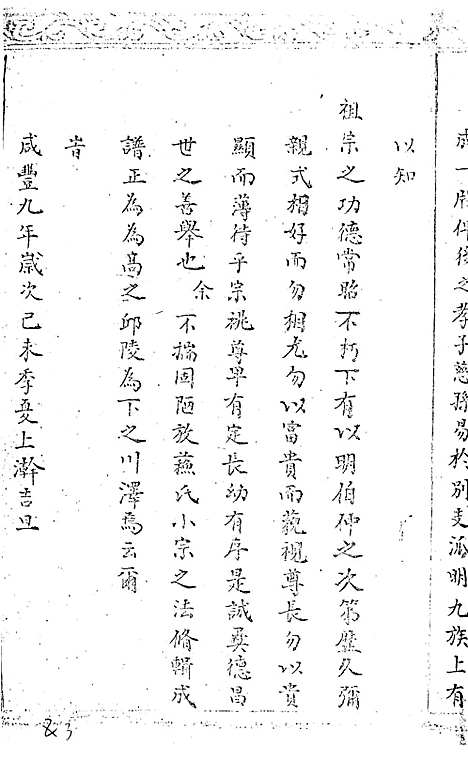 成一牒俾後之孝子慈孫易於別支派明九族上有
以知
祖宗之功德常昭不朽下有以明伯仲之次第歷久彌
親式相好而勿相尤勿以富貴而藐視尊長勿以賞
顯而薄待乎宗祧尊卑有定長幼有序是誠奕德昌
世之善舉也余不揣固陋放蘇氏小宗之法脩輯成
譜正為為高之邱陵為下之川澤焉云爾
旹
咸豐九年歲次己未季夏上澣吉旦
83